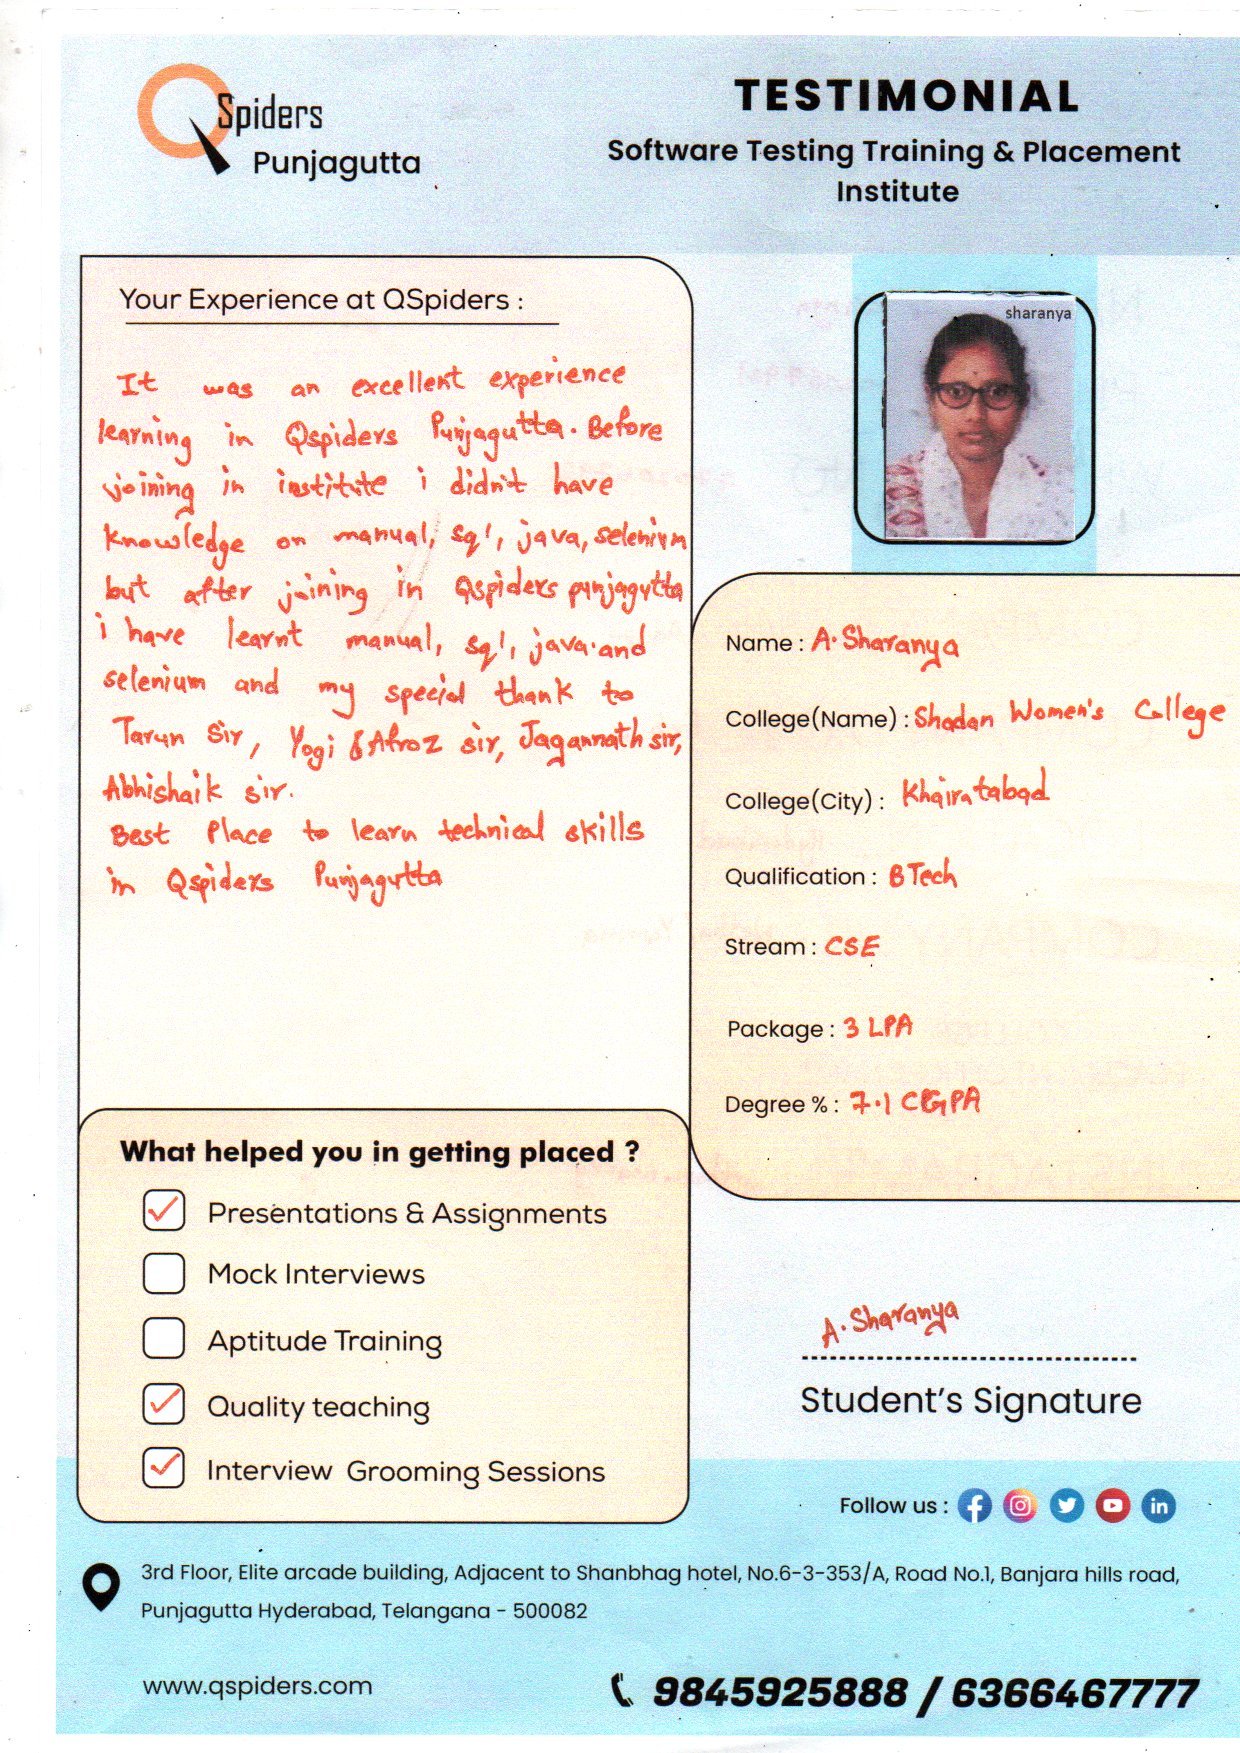 QSpiders
Punjagutta
TESTIMONIAL
Software Testing Training & Placement
Institute
Your Experience at QSpiders :
It was an excellent experience
learning in Qspiders Punjagutta. Before
joining in institute i didn't have
knowledge on manual, sql, java, selenium
but after joining in Qspiders punjagutta
i have learnt manual, sql, java and
selenium and my special thank to
Tarun Sir, Yogi & Afroz sir, Jagannath sir,
Abhishaik sir.
Best Place to learn technical skills
in Qspiders Punjagutta
sharanya
Name : A. Sharanya
College(Name) : Shadan Women's College
College(City) : Khairatabad
Qualification : B Tech
Stream : CSE
Package : 3 LPA
Degree % : 7.1 CGPA
What helped you in getting placed ?
Presentations & Assignments
Mock Interviews
Aptitude Training
Quality teaching
Interview Grooming Sessions
A. Sharanya
Student's Signature
Follow us :
3rd Floor, Elite arcade building, Adjacent to Shanbhag hotel, No.6-3-353/A, Road No.1, Banjara hills road,
Punjagutta Hyderabad, Telangana - 500082
www.qspiders.com
9845925888 / 6366467777